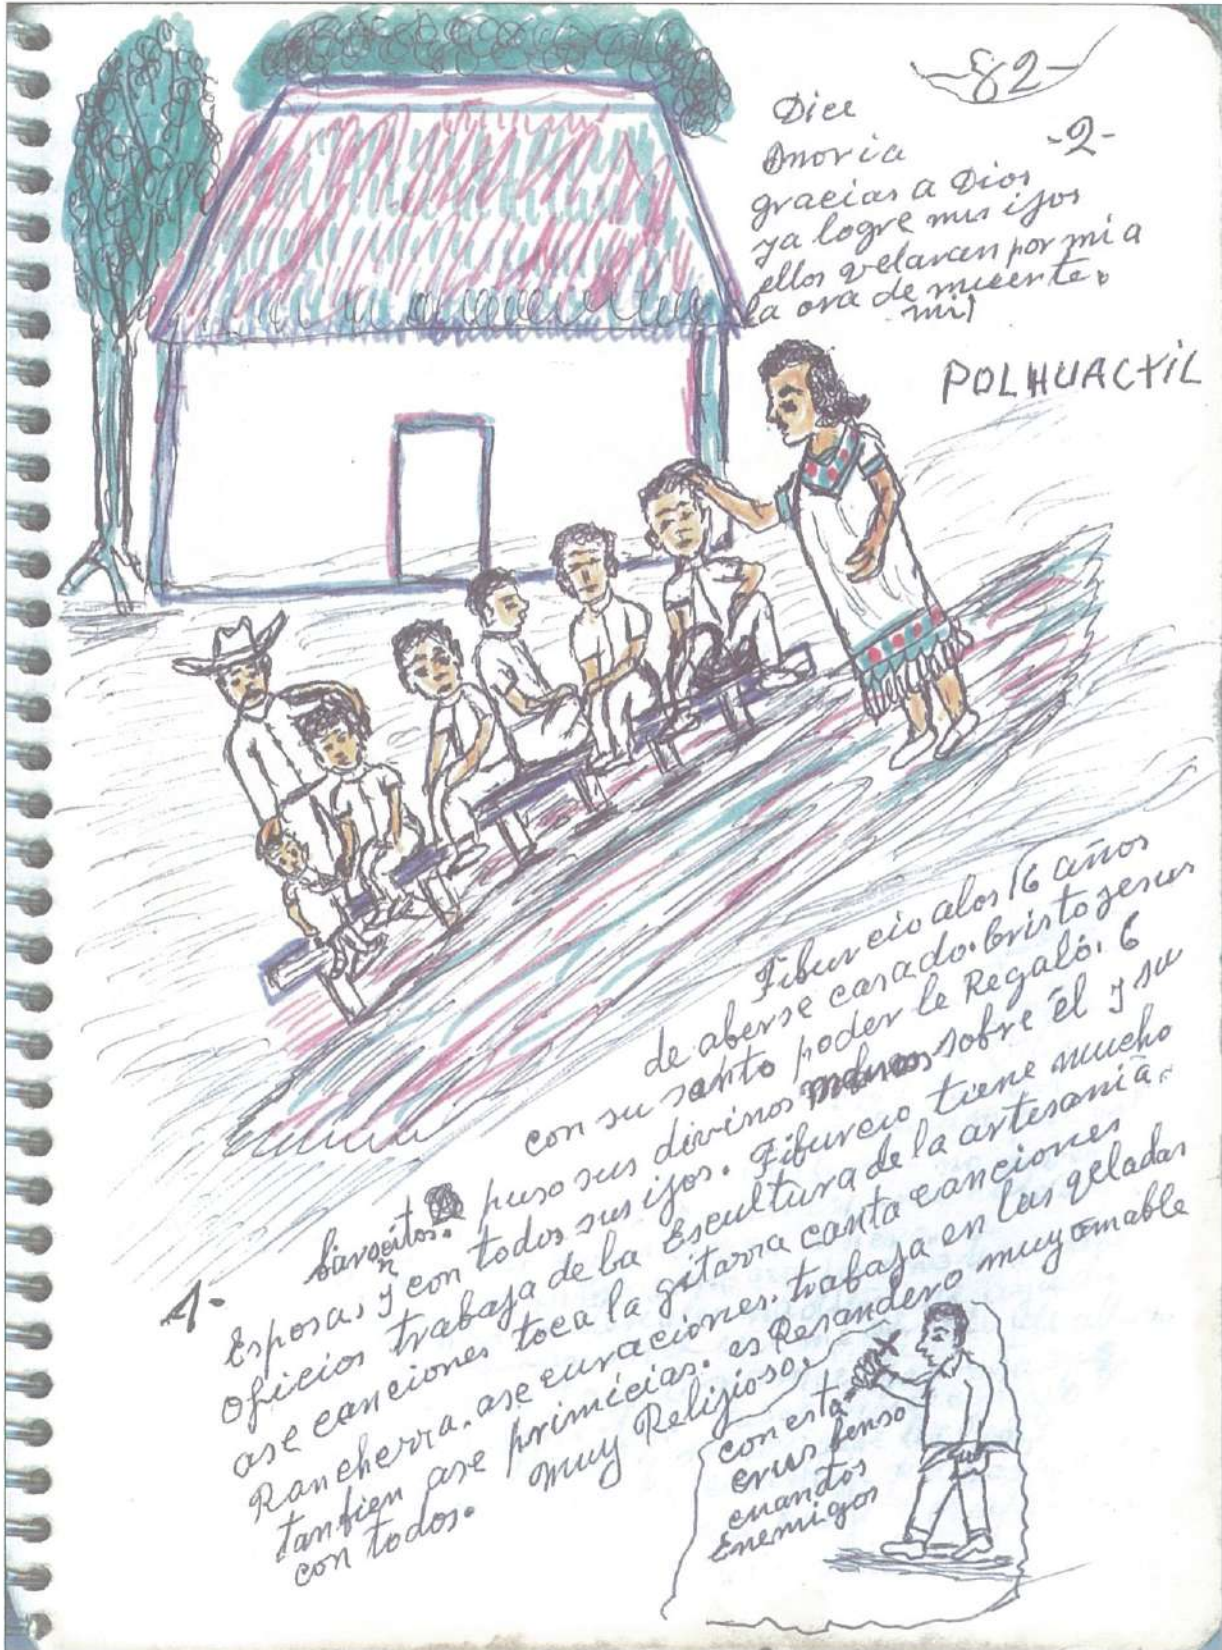 -82-
Dice
Onoria -2-
gracias a Dios
ya logre mis ijos
ellos velaran por mi a
la ora de muerte.
mi)
POLHUACTXIL
Fiburcio alos 16 años
de aberse casado. Cristo Jesus
con su santo poder le Regaló. 6
Baroncitos. puso sus divinos manos sobre él y su
1-
Esposa, y con todos sus ijos. Fiburcio tiene mucho
oficios trabaja de la Escultura de la artesania.
ase canciones toca la gitarra canta canciones
Rancherra. ase curaciones. trabaja en las veladas
tanbien ase primicias. es Resandero muy amable
con todos. muy Religioso.
con esta
crus benso
cuantos
Enemigos